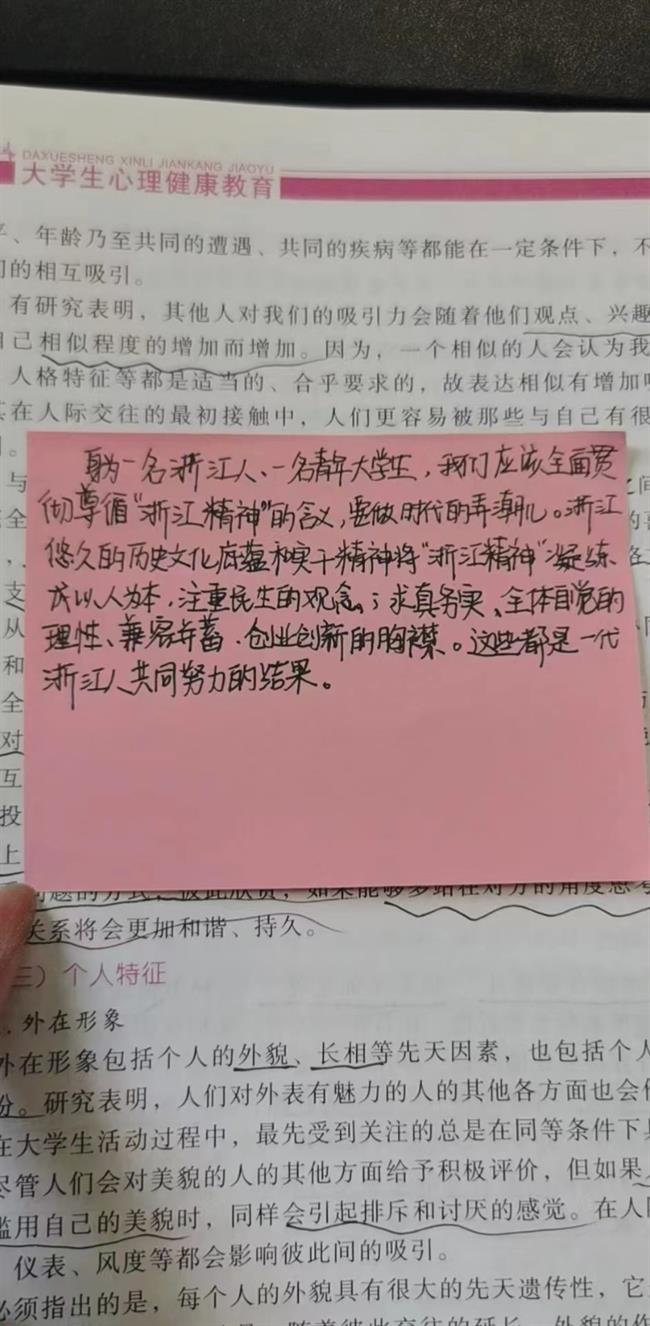 DAXUESHENG XINLI JIANKANG JIAOYU
大学生心理健康教育
、年龄乃至共同的遭遇、共同的疾病等都能在一定条件下，不
的相互吸引。
有研究表明，其他人对我们的吸引力会随着他们观点、兴趣
己相似程度的增加而增加。因为，一个相似的人会认为我
人格特征等都是适当的、合乎要求的，故表达相似有增加
在人际交往的最初接触中，人们更容易被那些与自己有很
身为一名浙江人、一名青年大学生，我们应该全面贯
彻尊循“浙江精神”的含义，要做时代的弄潮儿。浙江
悠久的历史文化底蕴和实干精神将“浙江精神”凝练
成以人为本，注重民生的观念；求真务实、全体自觉的
理性、兼容并蓄、创业创新的胸襟。这些都是一代
浙江人共同努力的结果。
与
全
支
从
和
全
对
互
投
上
问题的方式，彼此欣赏，如果能够多站在对方的角度思考
关系将会更加和谐、持久。
三）个人特征
.外在形象
外在形象包括个人的外貌、长相等先天因素，也包括个人
份。研究表明，人们对外表有魅力的人的其他各方面也会
在大学生活动过程中，最先受到关注的总是在同等条件下
尽管人们会对美貌的人的其他方面给予积极评价，但如果
滥用自己的美貌时，同样会引起排斥和讨厌的感觉。在人
仪表、风度等都会影响彼此间的吸引。
必须指出的是，每个人的外貌具有很大的先天遗传性，它
随着彼此交往的延长，外貌的作